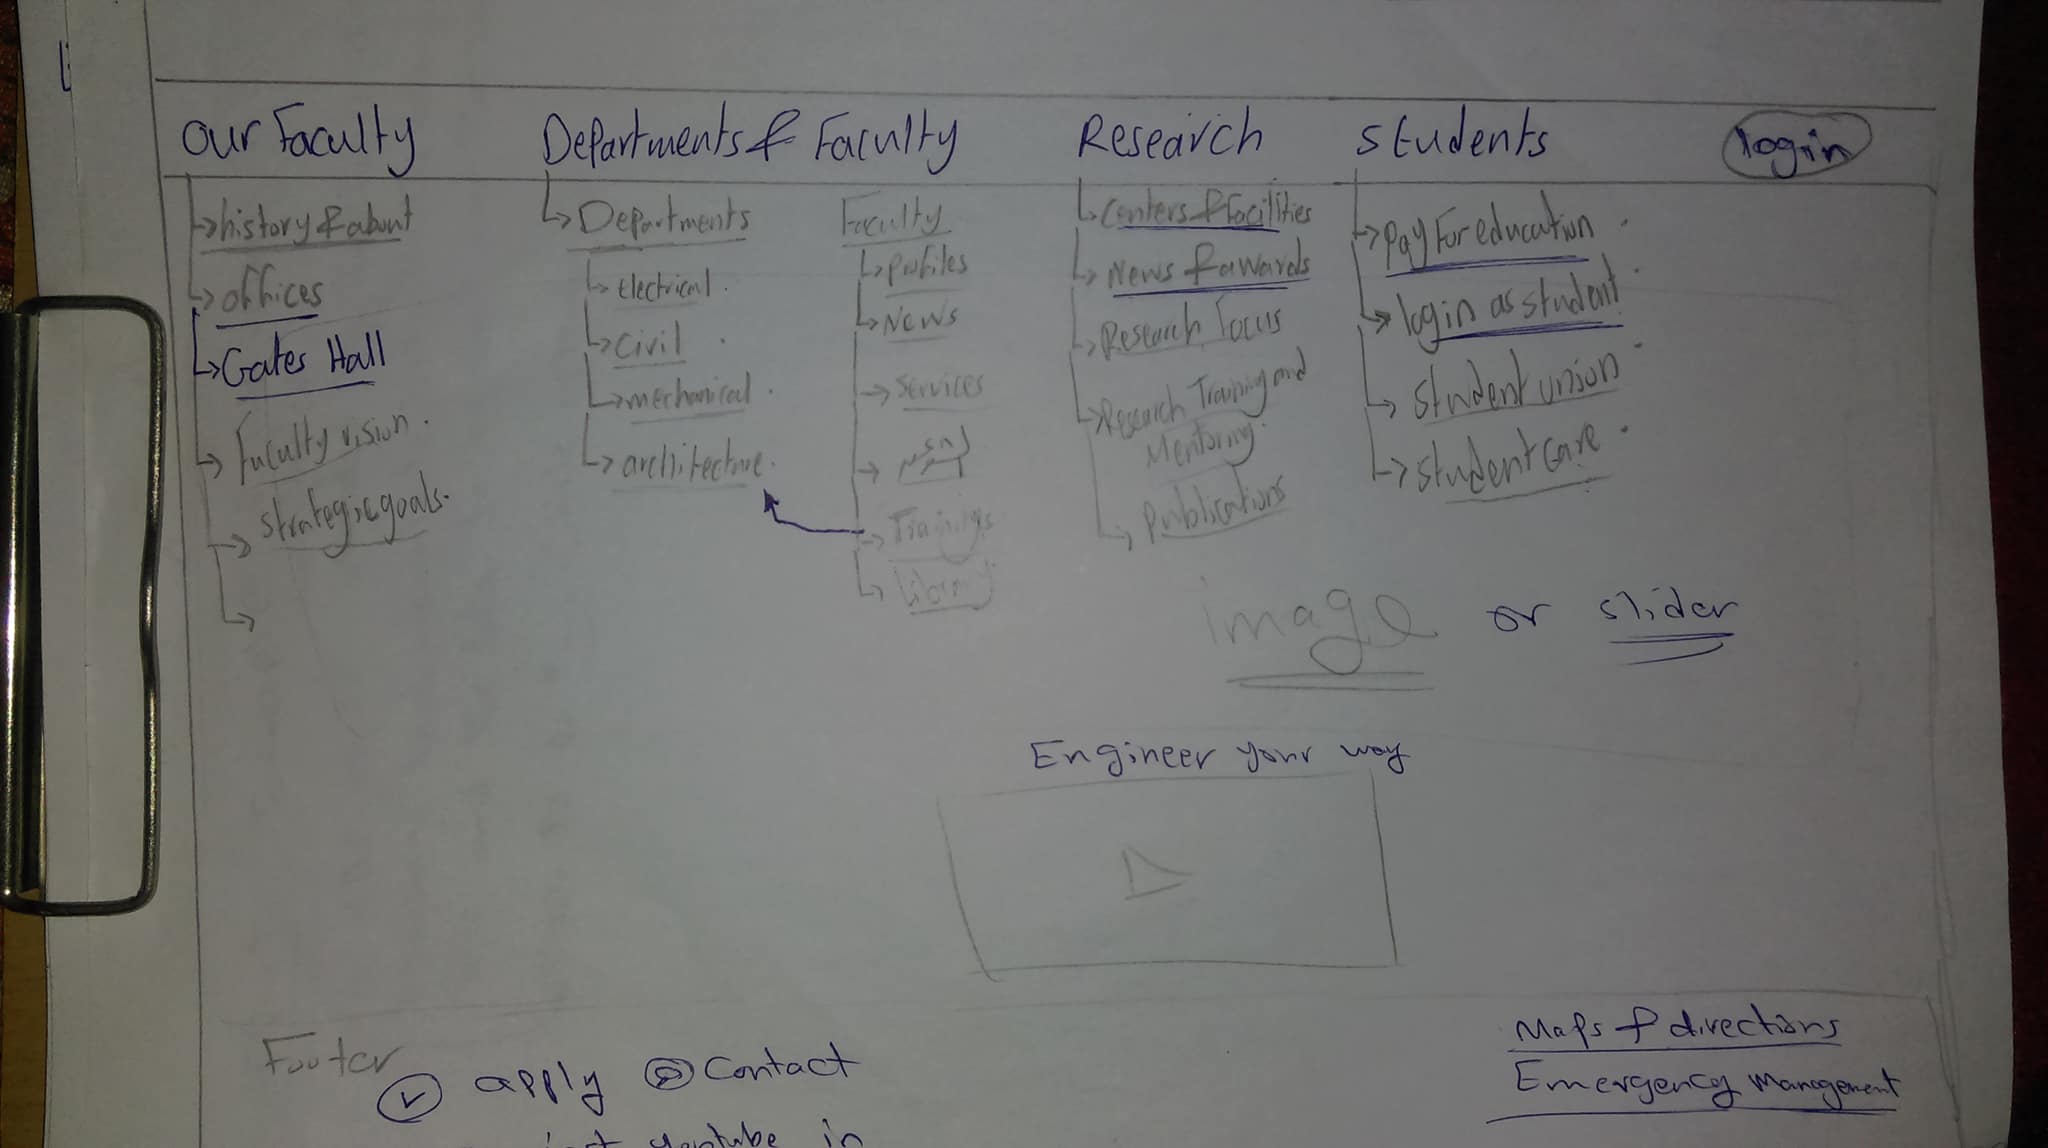 our Faculty
Departments & Faculty
Research
Students
login
history & about
offices
Gates Hall
Faculty vision.
strategic goals.
Departments
Electrical.
Civil.
mechanical.
architecture.
Faculty
profiles
News
Services
Trainings
Library
Centers & Facilities
News & awards
Research Focus
Research Training and
Mentoring.
publications
pay For education.
login as student.
student union.
student care.
image or slider
Engineer your way
Footer
apply
Contact
youtube in
Maps & directions
Emergency Management